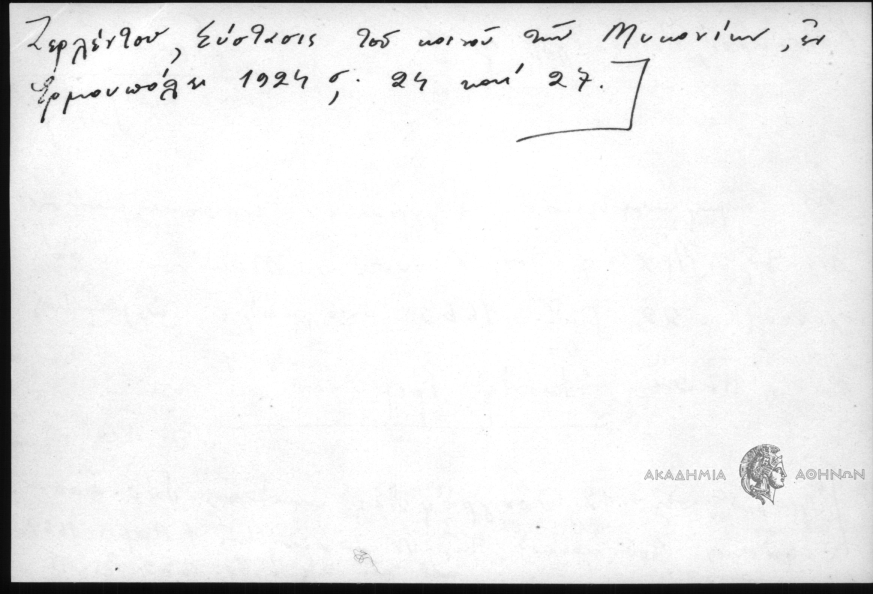 Ζερλέντου, Σύστασις τοῦ κοινοῦ τῶν Μυκονίων, ἐν
Ἑρμουπόλει 1924 σ. 24 καί 27.
ΑΚΑΔΗΜΙΑ ΑΘΗΝΩΝ